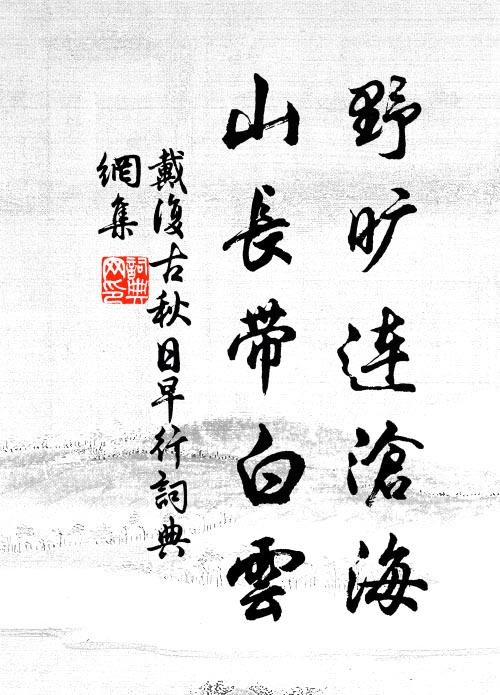 野旷连滄海
山長帶白雲
戴復古秋日早行詞典
網集
詞典
网印